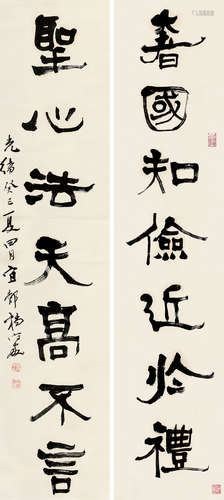 國知儉近於禮
聖心法天高不言
光緒癸巳夏四月宜都楊守敬